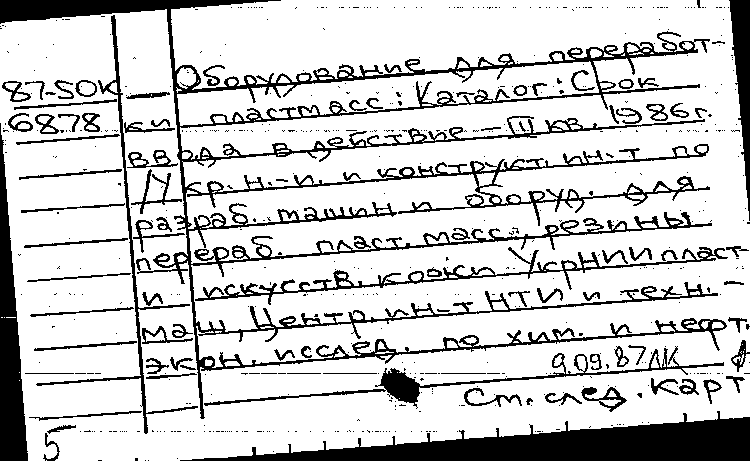 87-50К Оборудование для переработ-
6878 ки пластмасс: Каталог: Срок
ввода в действие – III кв. 1986 г.
/ Укр. н.-и. и конструкт. ин-т по
разраб. машин и оборуд. для
перераб. пласт. масс, резины
и искусств. кожи УкрНИИпласт-
маш, Центр. ин-т НТИ и техн.-
экон. исслед. по хим. и нефт.
9.09.87 ЛК
См. след. карт
5